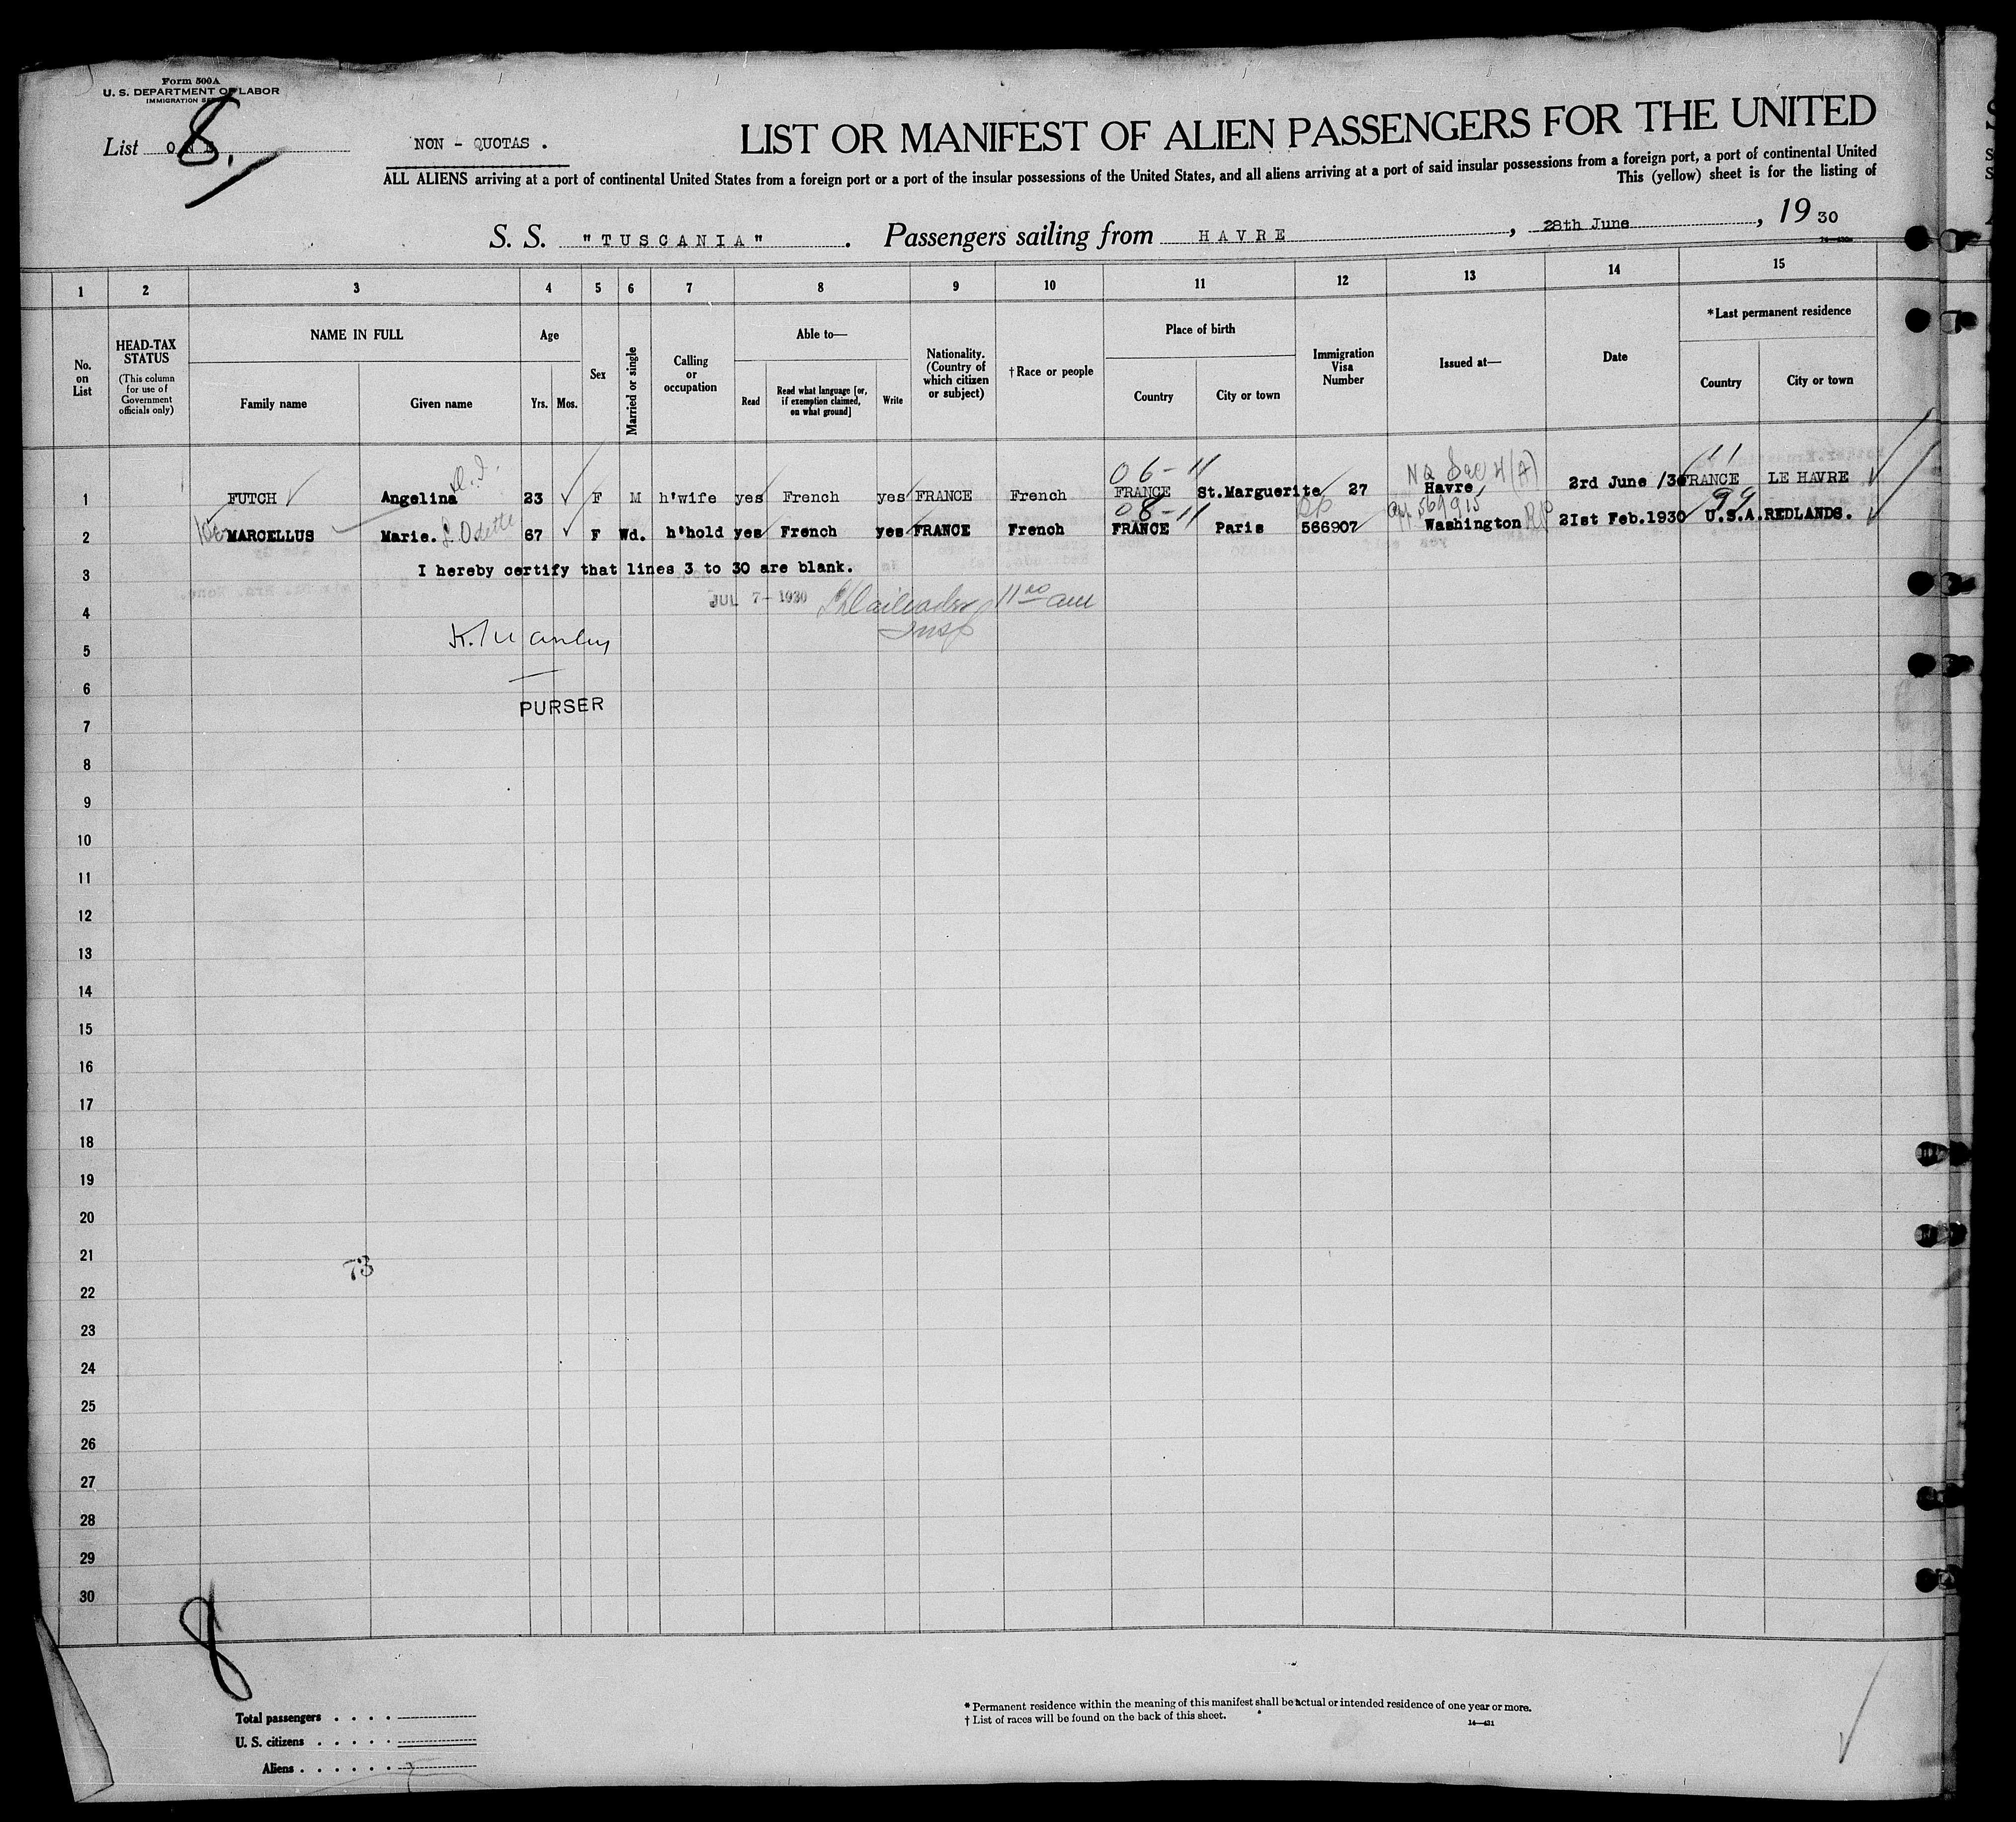 Form 500A
U. S. DEPARTMENT OF LABOR
IMMIGRATION
List 8.
NON - QUOTAS .
LIST OR MANIFEST OF ALIEN PASSENGERS FOR THE UNITED
ALL ALIENS arriving at a port of continental United States from a foreign port or a port of the insular possessions of the United States, and all aliens arriving at a port of said insular possessions from a foreign port, a port of continental United
This (yellow) sheet is for the listing of
S. S. "TUSCANIA" . Passengers sailing from HAVRE , 28th June , 19 30
1 2 3 4 5 6 7 8 9 10 11 12 13 14 15
No. on List
HEAD-TAX STATUS
(This column for use of Government officials only)
NAME IN FULL
Family name
Given name
Age
Yrs. Mos.
Sex
Married or single
Calling or occupation
Able to—
Read
Read what language [or, if exemption claimed, on what ground]
Write
Nationality. (Country of which citizen or subject)
†Race or people
Place of birth
Country
City or town
Immigration Visa Number
Issued at—
Date
*Last permanent residence
Country
City or town
06-11 NQ Sec 4(A) 11
1 FUTCH Angelina 23 F M h'wife yes French yes FRANCE French FRANCE St.Marguerite 27 Havre 2rd June /30 FRANCE LE HAVRE
08-11 RP 569915 99
2 MARCELLUS Marie. Odette 67 F Wd. h'hold yes French yes FRANCE French FRANCE Paris 566907 Washington RP 21st Feb.1930 U.S.A. REDLANDS.
3 I hereby certify that lines 3 to 30 are blank.
4 JUL 7-1930 11 00 am
Insp
5
6
PURSER
7
8
9
10
11
12
13
14
15
16
17
18
19
20
21
73
22
23
24
25
26
27
28
29
30
8
Total passengers . . . .
U. S. citizens . . . . .
Aliens . . . . . .
* Permanent residence within the meaning of this manifest shall be actual or intended residence of one year or more.
† List of races will be found on the back of this sheet.
14—431